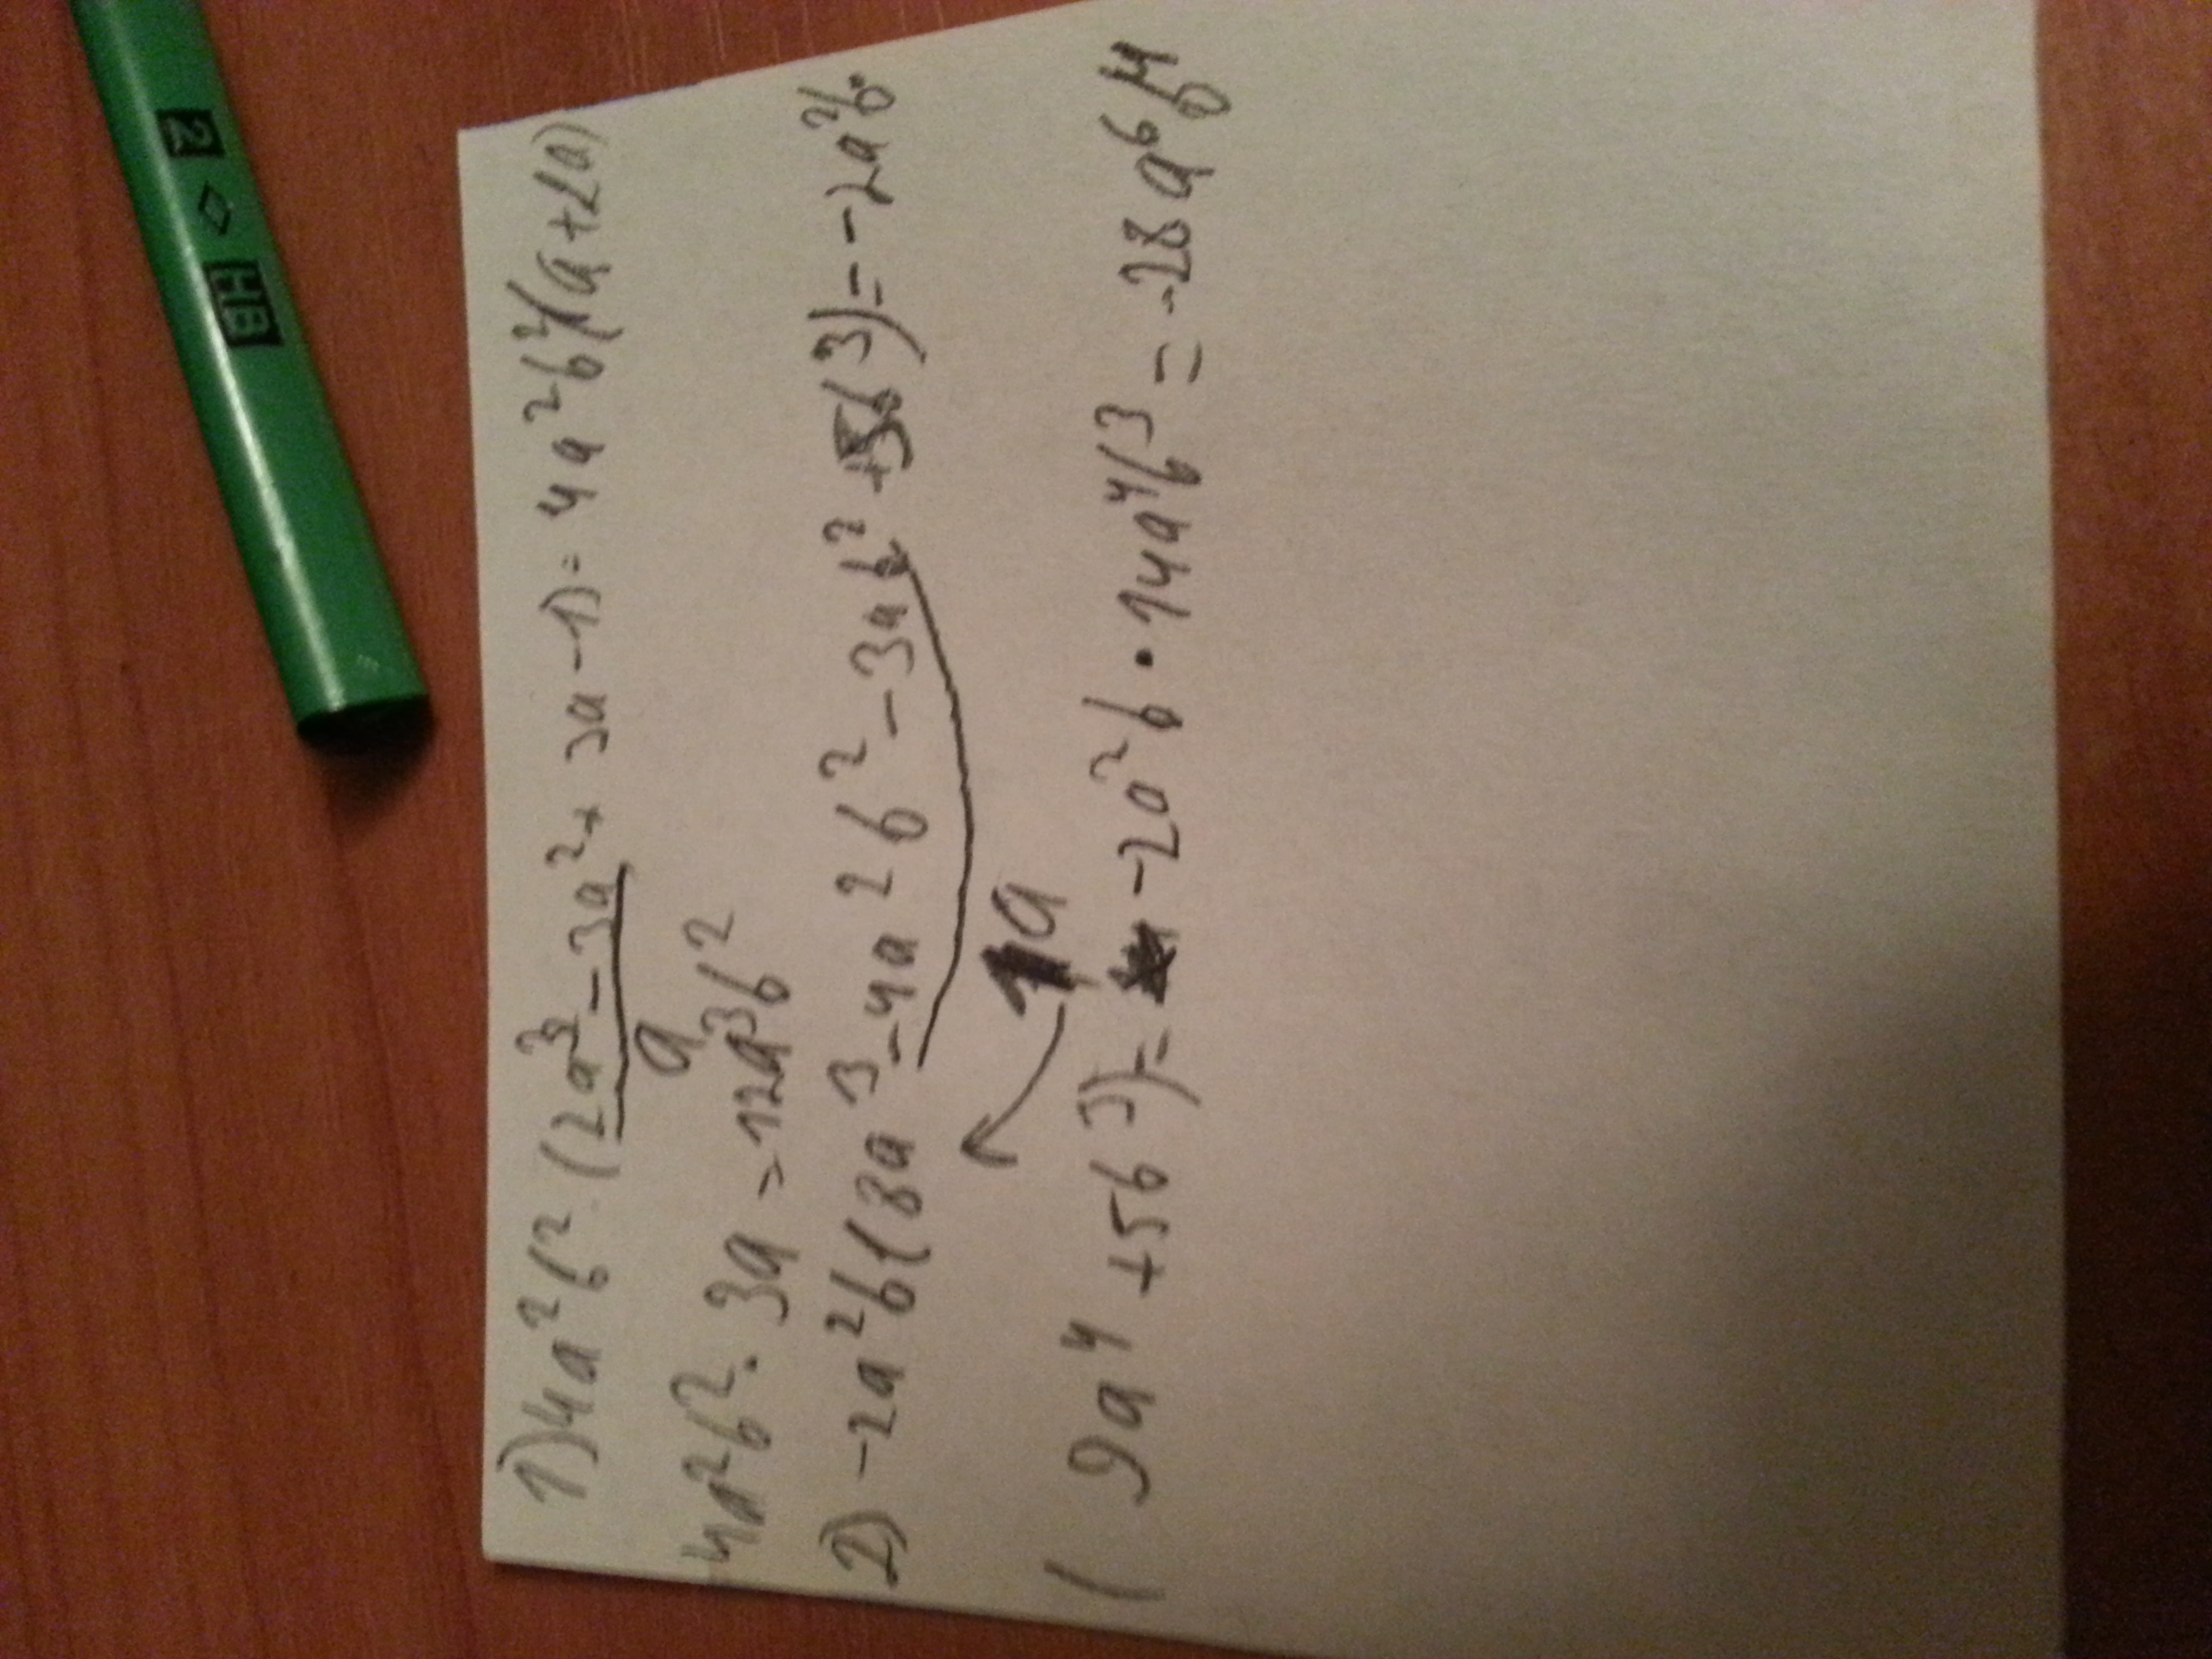 1) 4a²b² · (2a³ - 3a² + 3a - 1) = 4a²b²(a + 2a)
a
4a²b² · 3a = 12a³b²
2) -2a²b(8a³ - 4a2b² - 3ab² + 5b³) = -2a²b·
1a
(9a⁴ + 5b³) = -2a²b · 14a⁴b³ = -28a⁶b⁴
2 HB